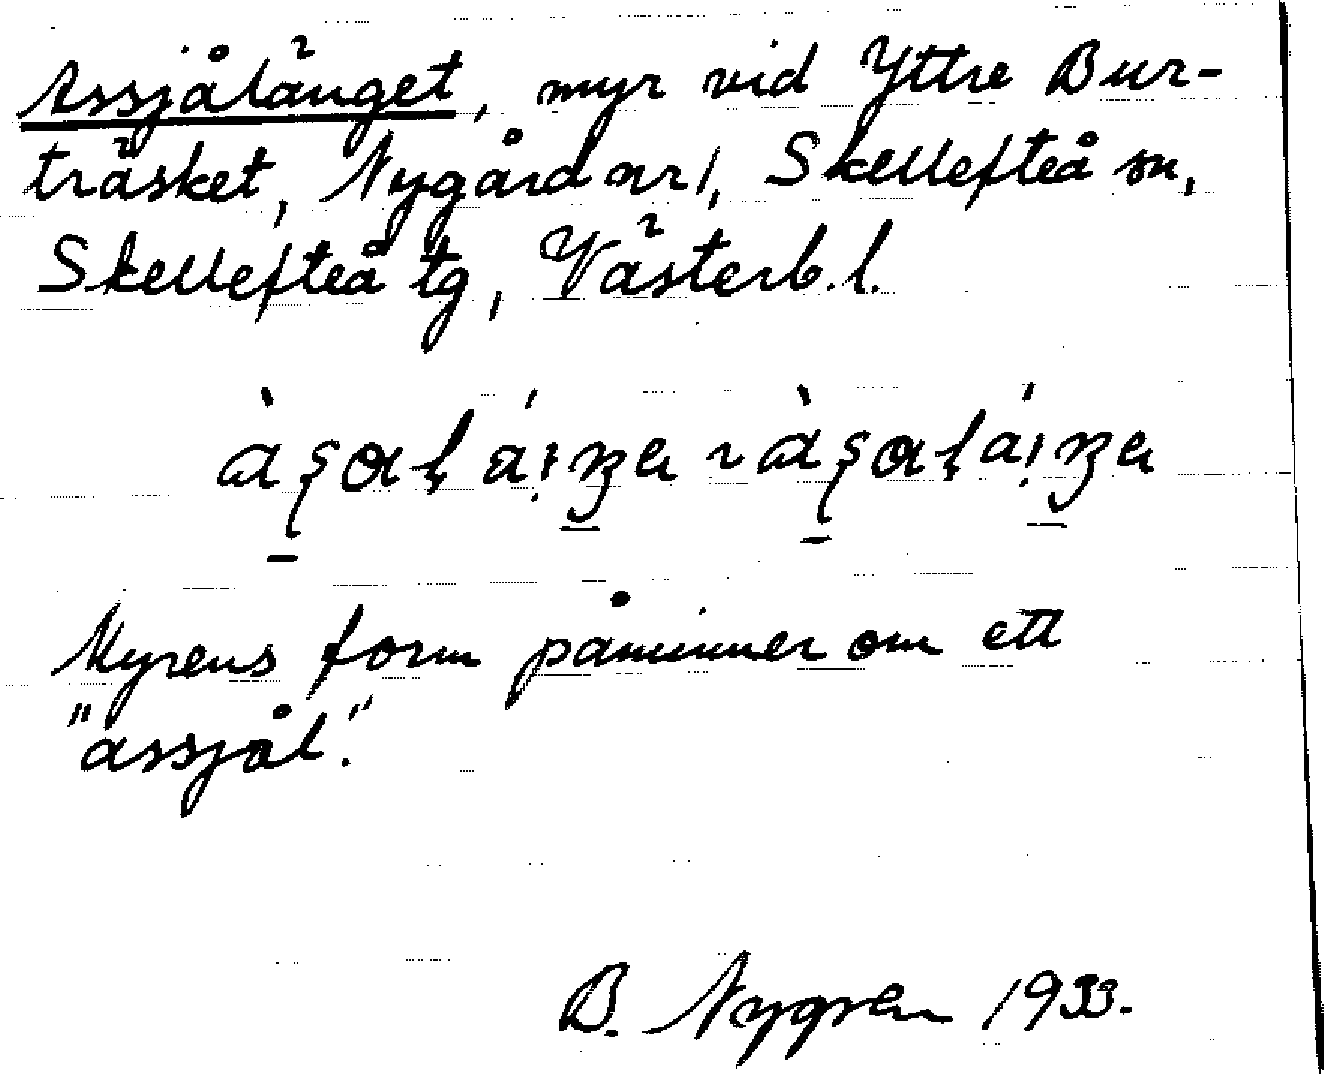 Assjålänget, myr vid Yttre Bur-
träsket, Nygård nr 1, Skellefteå sn,
Skellefteå tg, Västerb. l.
Myrens form påminner om ett
"assjål".
B. Nygren 1933.